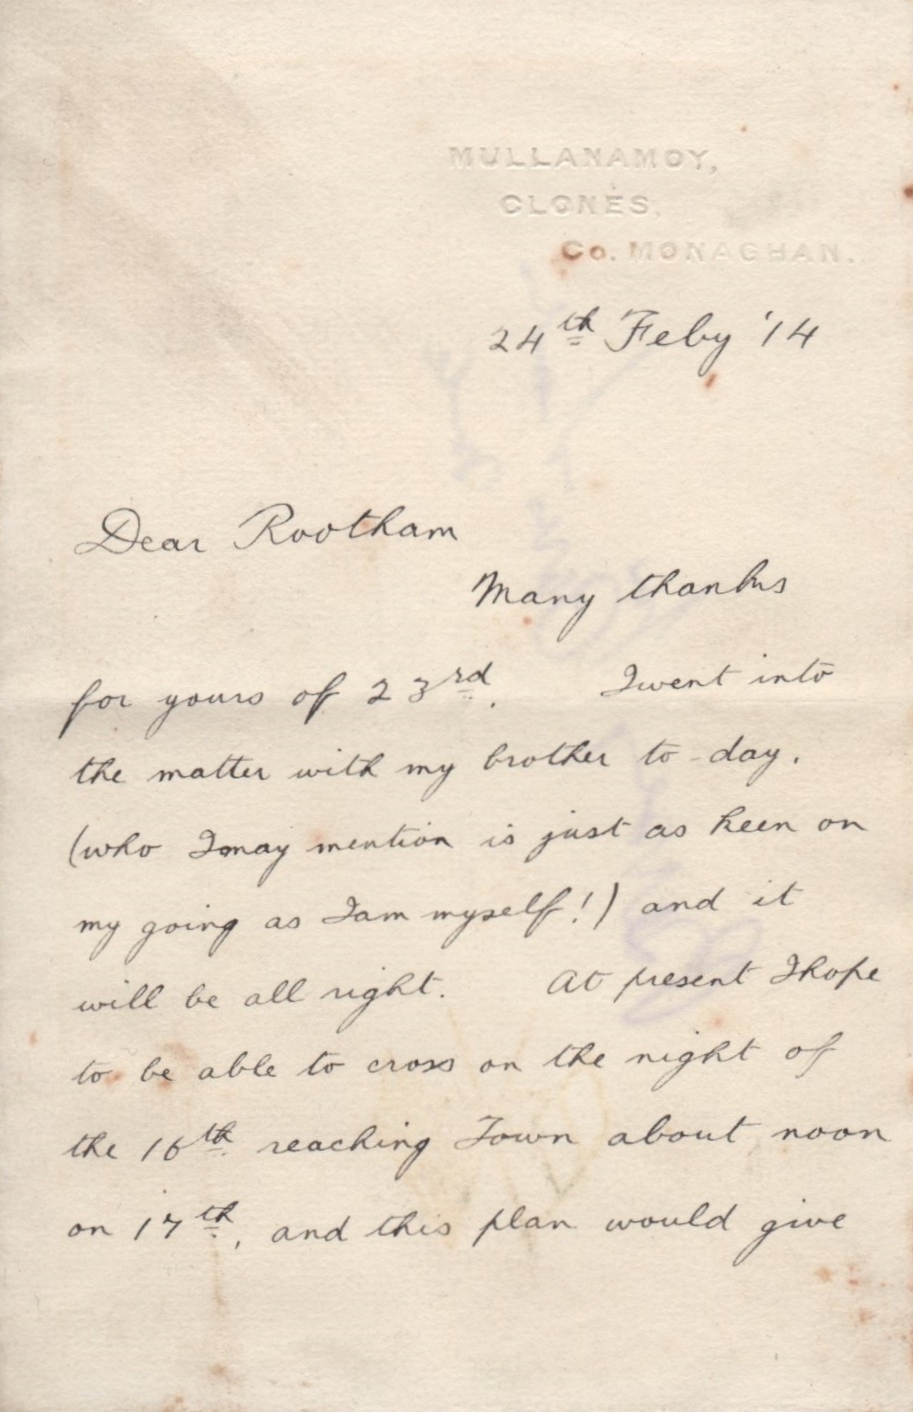 MULLANAMOY,
CLONES,
Co. MONAGHAN.
24th Feby '14
Dear Rootham
Many thanks
for yours of 23rd. I went into
the matter with my brother to-day.
(who I may mention is just as keen on
my going as I am myself!) and it
will be all right. At present I hope
to be able to cross on the night of
the 16th reaching Town about noon
on 17th, and this plan would give